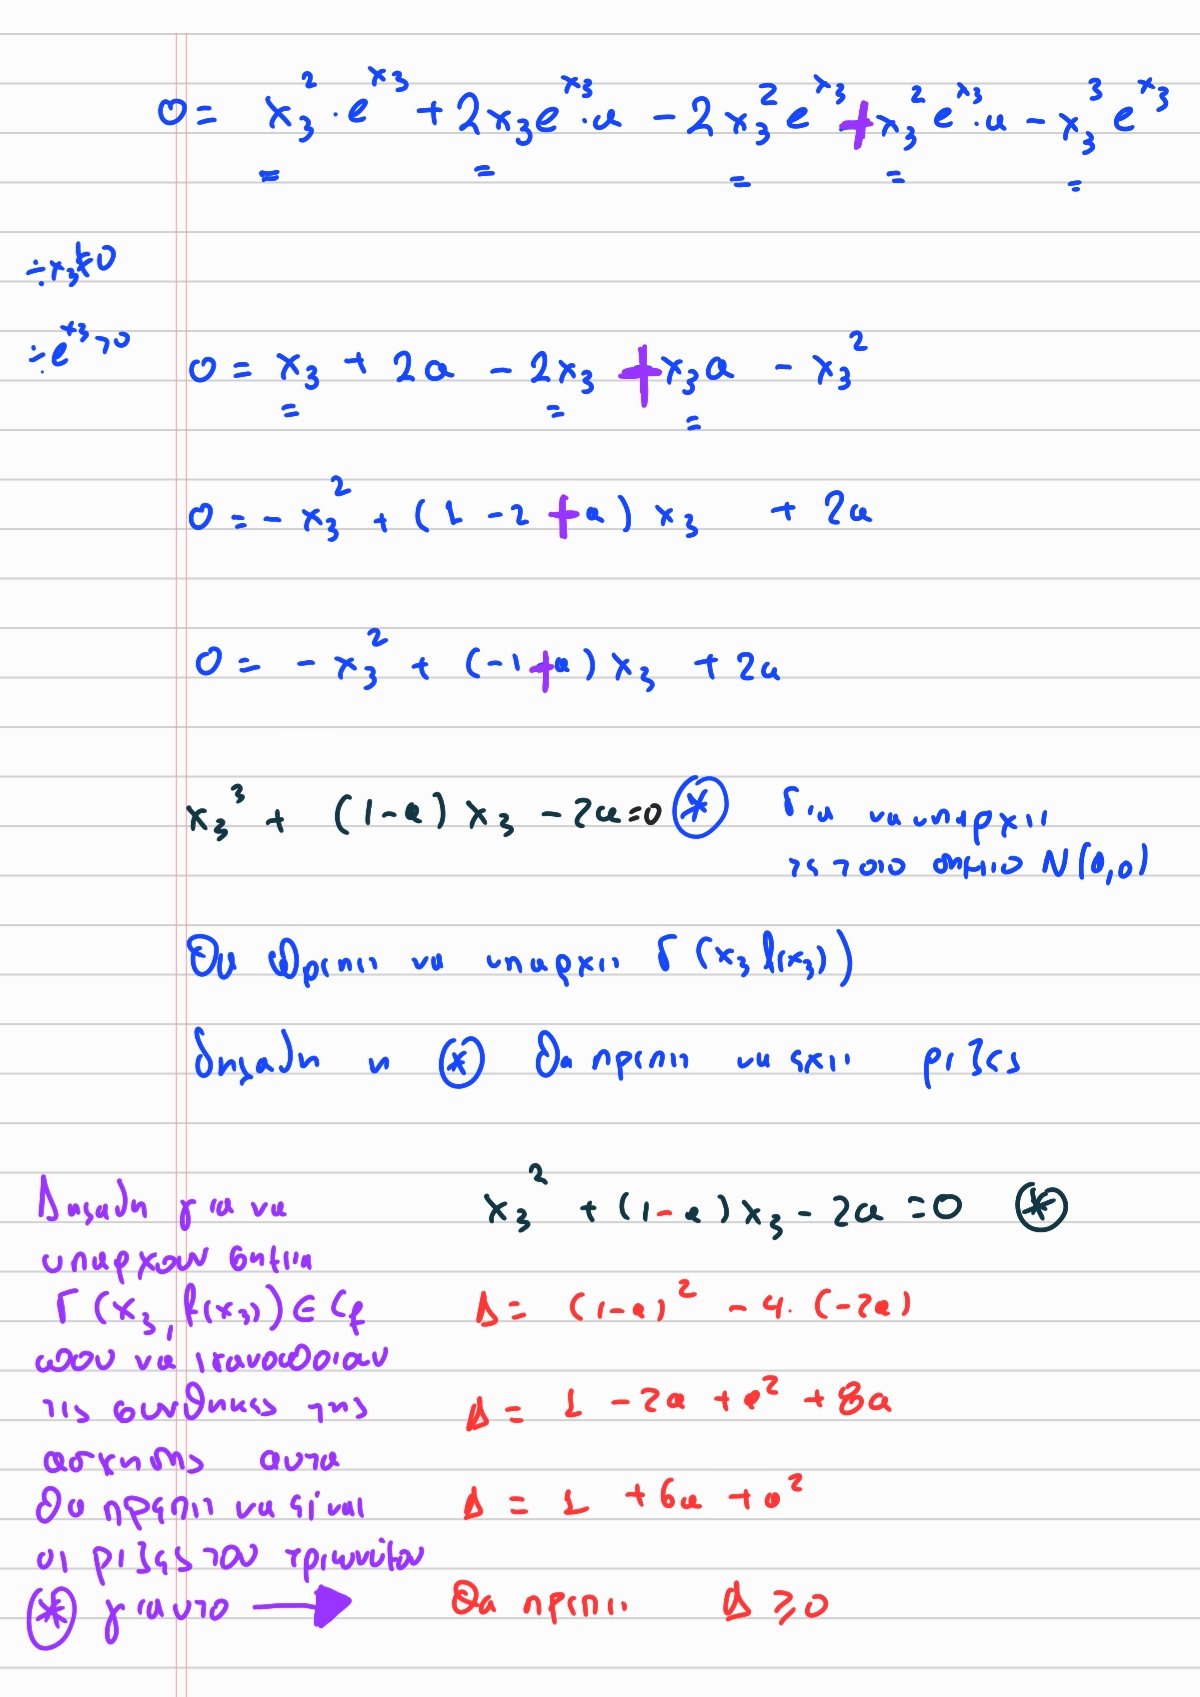 0 = x₃² · e^x₃ + 2x₃e^x₃ · α − 2x₃² e^x₃ + x₃² e^x₃ · α − x₃³ e^x₃
÷x₃≠0
÷e^x₃>0
0 = x₃ + 2α − 2x₃ + x₃α − x₃²
0 = − x₃² + (1 − 2 + α) x₃ + 2α
0 = − x₃² + (−1+α) x₃ + 2α
x₃³ + (1−α) x₃ − 2α=0 (*) Για να υπαρχει
τετοιο σημειο Ν(α,0)
Θα πρεπει να υπαρχει Γ(x₃ f(x₃))
δηλαδη η (*) θα πρεπει να εχει ριζες
x₃² + (1−α)x₃ − 2α = 0 (*)
Δηλαδη για να
υπαρχουν σημεια
Γ(x₃, f(x₃)) ∈ Cf
που να ικανοποιουν
τις συνθηκες της
ασκησης αυτα
θα πρεπει να είναι
οι ριζες του τριωνύμου
(*) γιαυτο →
Δ = (1−α)² − 4 · (−2α)
Δ = 1 − 2α + α² + 8α
Δ = 1 + 6α + α²
Θα πρεπει Δ ≥ 0